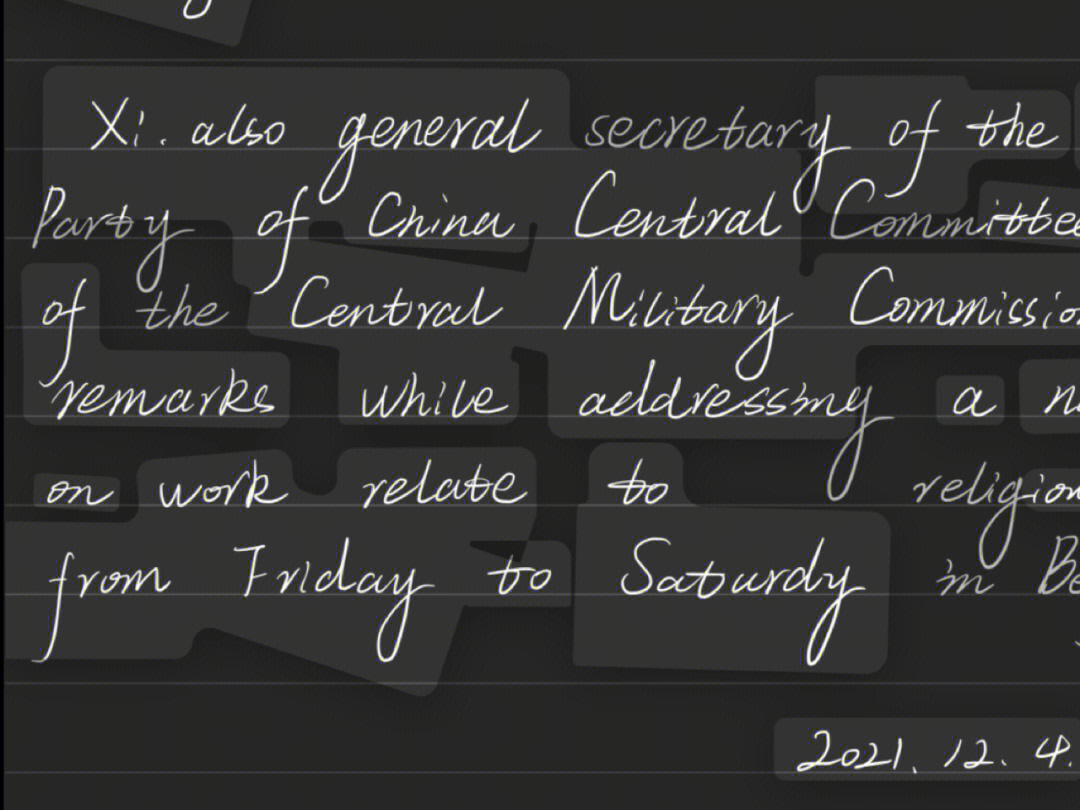 Xi. also general secretary of the
Party of China Central Committee
of the Central Military Commission
remarks while addressing a
on work relate to religion
from Friday to Saturdy in Be
2021. 12. 4.